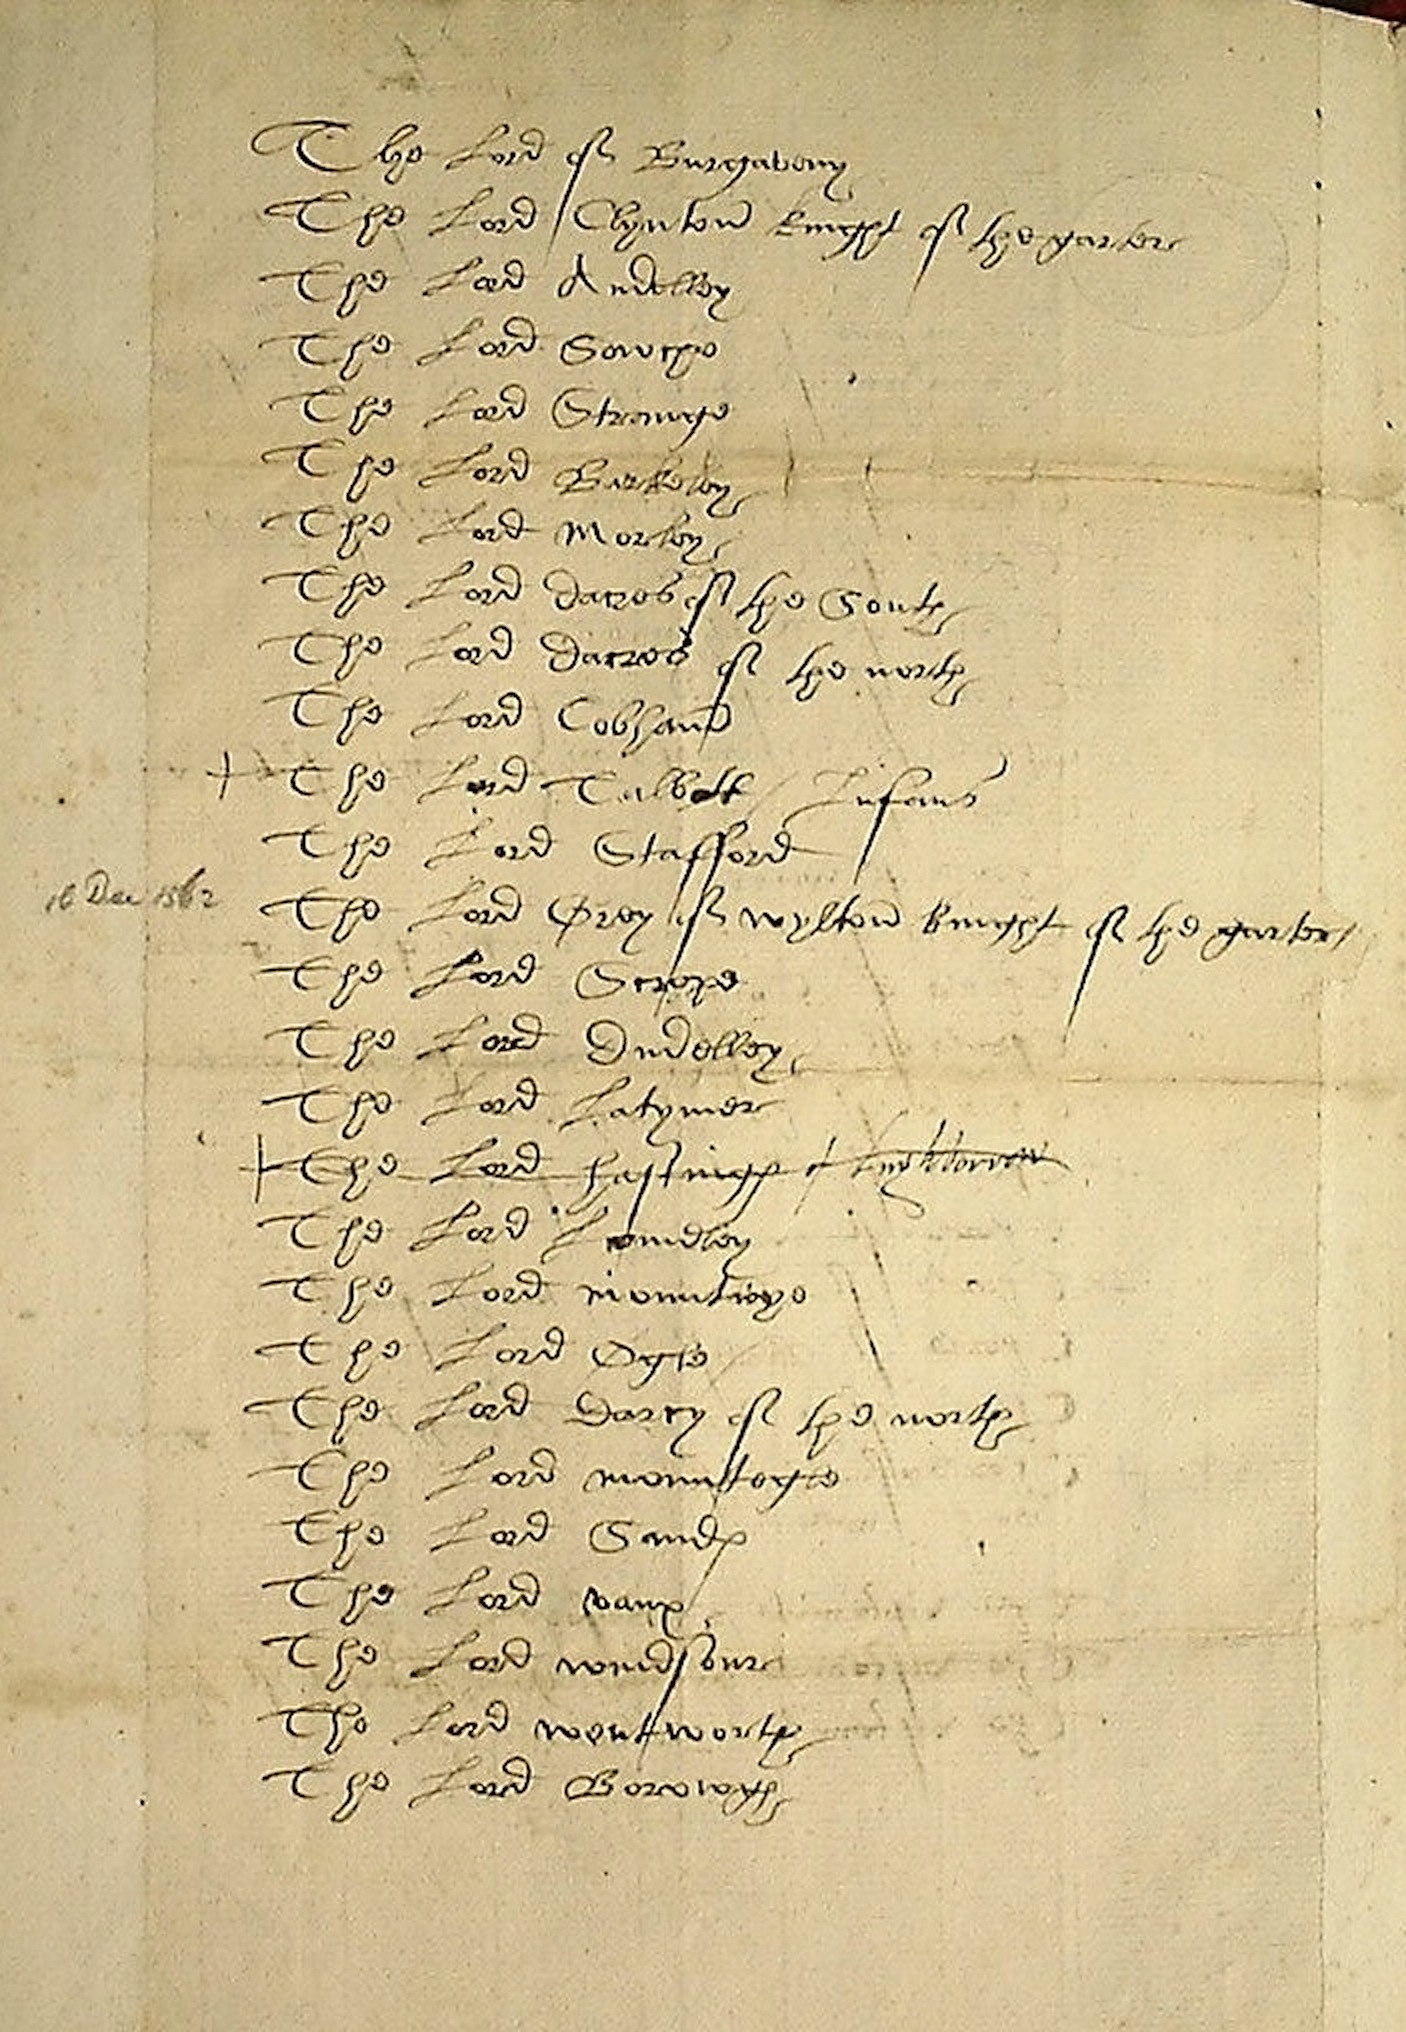 The Lord of Burgaveny
The Lord Clynton knyght of the garter
The Lord Audelley
The Lord Sowche
The Lord Straunge
The Lord Barkeley
The Lord Morley
The Lord dacres of the South
The Lord dacres of the north
The Lord Cobham
+ The Lord Talbott / Infans
The Lord Stafford
16 Dec 1562 The Lord Grey of wylton knyght of the garter
The Lord Scrope
The Lord Dudelley
The Lord Latymer
+ The Lord hastinges of
The Lord Lomeley
The Lord mountioye
The Lord Ogle
The Lord Darcy of the north
The Lord mountegle
The Lord Sandes
The Lord vaux
The Lord windsour
The Lord wentworth
The Lord Borowgh